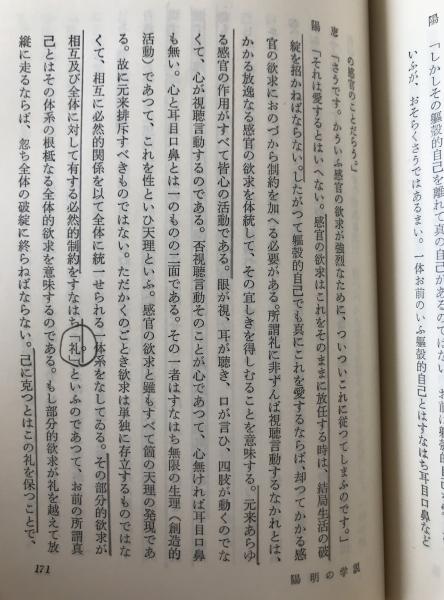 陽 「しかしその軀殻的自己を離れて真の自己があるのではない。お前は軀殻的自
いふが、おそらくさうではあるまい。一体お前のいふ軀殻的自己とはすなはち耳目口鼻など
の感官のことだらう。」
恵 「さうです。かういふ感官の欲求が強烈なために、ついついこれに従つてしまふのです。」
陽 「それは愛するとはいへない。感官の欲求はこれをそのままに放任する時は、結局生活の破
綻を招かねばならない。したがつて軀殻的自己でも真にこれを愛するならば、却つてかかる感
官の欲求におのづから制約を加へる必要がある。所謂礼に非ずんば視聴言動するなかれとは、
かかる放逸なる感官の欲求を体統して、その宜しきを得しむることを意味する。元来あらゆ
る感官の作用がすべて皆心の活動である。眼が視、耳が聴き、口が言ひ、四肢が動くのでな
くて、心が視聴言動するのである。否視聴言動そのことが心であつて、心無ければ耳目口鼻
も無い。心と耳目口鼻とは一のものの二面である。その一者はすなはち無限の生理（創造的
活動）であつて、これを性といひ天理といふ。感官の欲求と雖もすべて箇の天理の発現であ
る。故に元来排斥すべきものではない。ただかくのごとき欲求は単独に存立するものではな
くて、相互に必然的関係を以て全体に統一せられる一体系をなしてゐる。その部分的欲求が
相互及び全体に対して有する必然的制約をすなはち「礼」といふのであつて、お前の所謂真
己とはその体系の根柢なる全体的欲求を意味するのである。もし部分的欲求が礼を越えて放
縦に走るならば、忽ち全体の破綻に終らねばならない。己に克つとはこの礼を保つことで、
陽明の学説
171